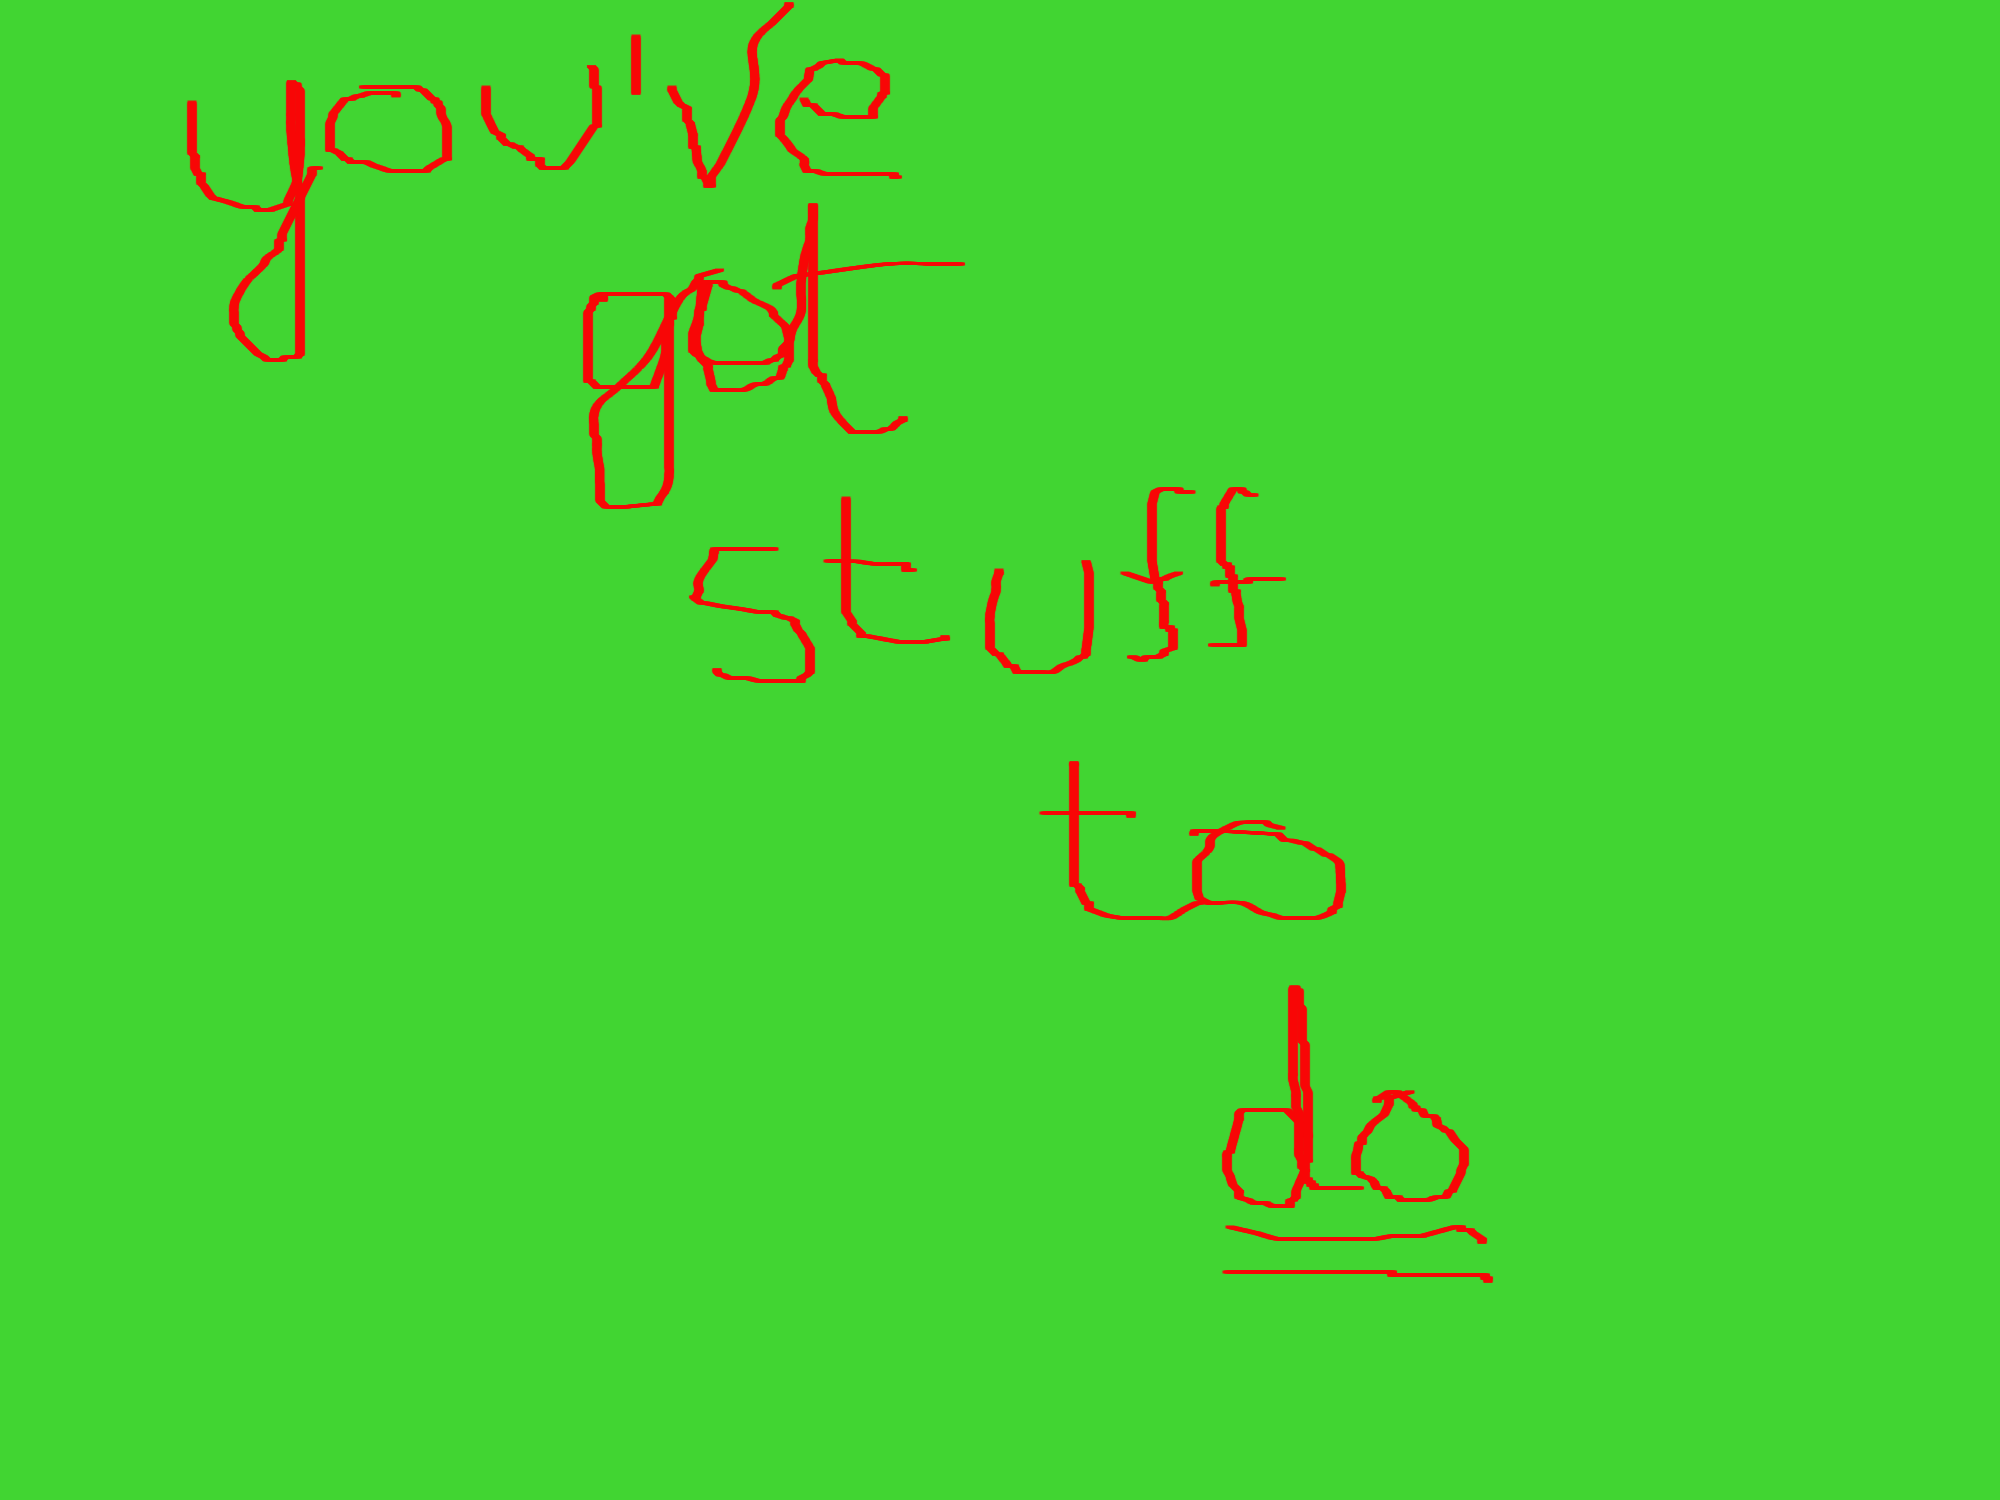 you've
got
stuff
to
do